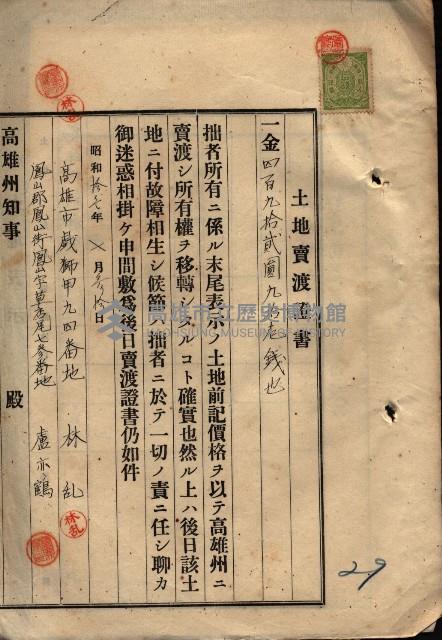 土地賣渡證書
一金四百九拾貳圓九拾七錢也
拙者所有ニ係ル末尾表示ノ土地前記價格ヲ以テ高雄州ニ
賣渡シ所有權ヲ移轉シタルコト確實也然ル上ハ後日該土
地ニ付故障相生シ候節ハ拙者ニ於テ一切ノ責ニ任シ聊カ
御迷惑相掛ケ申間敷爲後日賣渡證書仍如件
昭和拾七年 月 日
高雄市戲獅甲九四番地 林乱
鳳山郡鳳山街鳳山字草店尾七參番地 盧亦鶴
高雄州知事 殿
林乱
29
高雄市立歷史博物館
KAOHSIUNG MUSEUM OF HISTORY